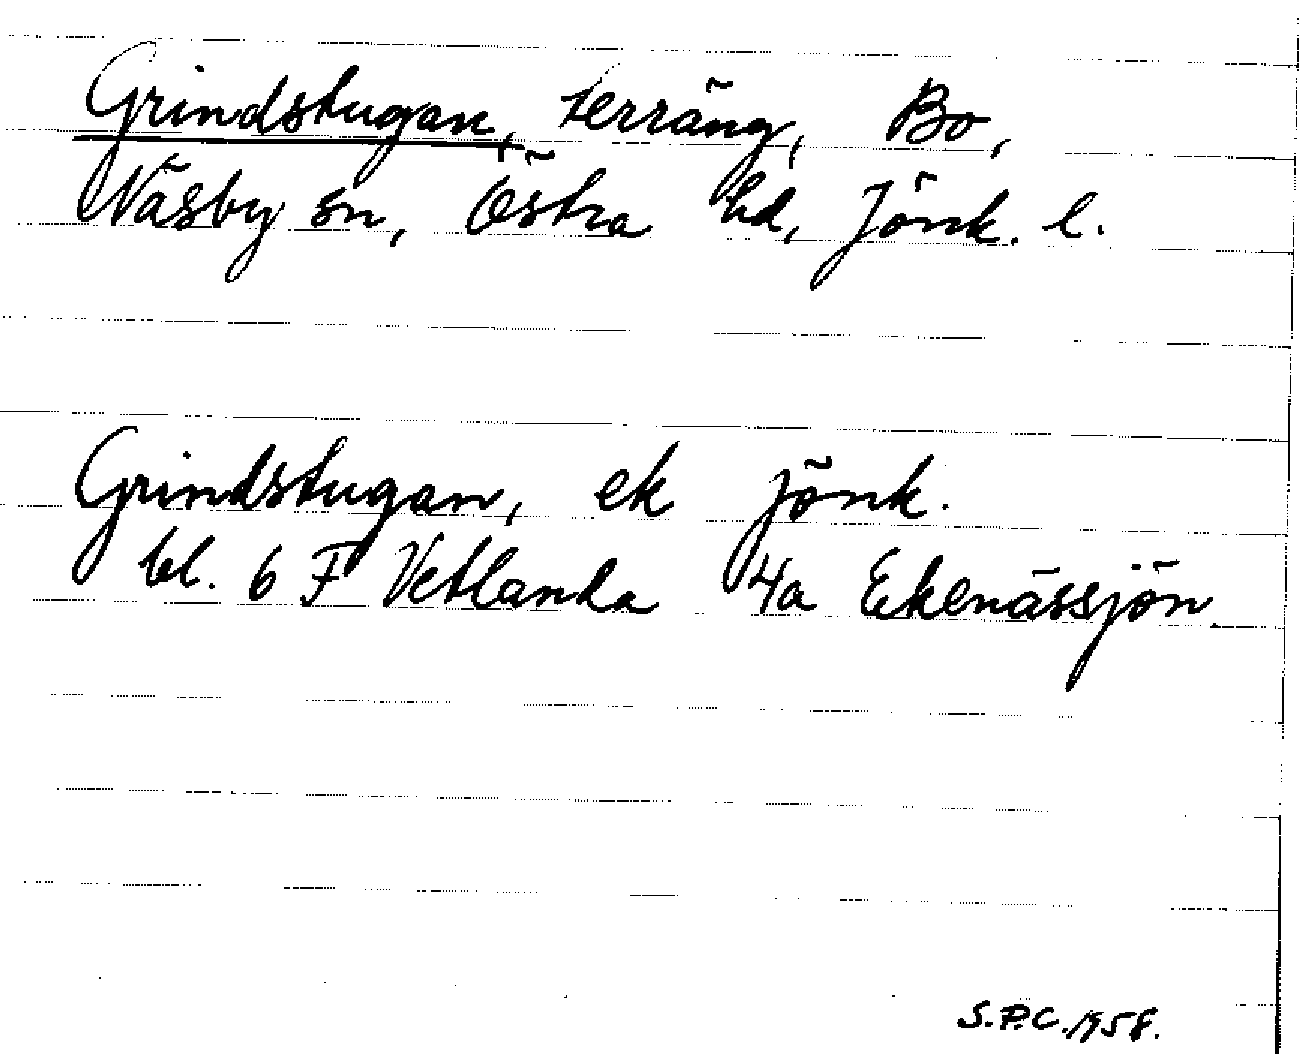 Grindstugan, terräng, Bo,
Näsby sn, Östra hd, Jönk. l.
Grindstugan, ek Jönk.
bl. 6 F Vetlanda 4a Ekenässjön.
S.P.C. 1958.